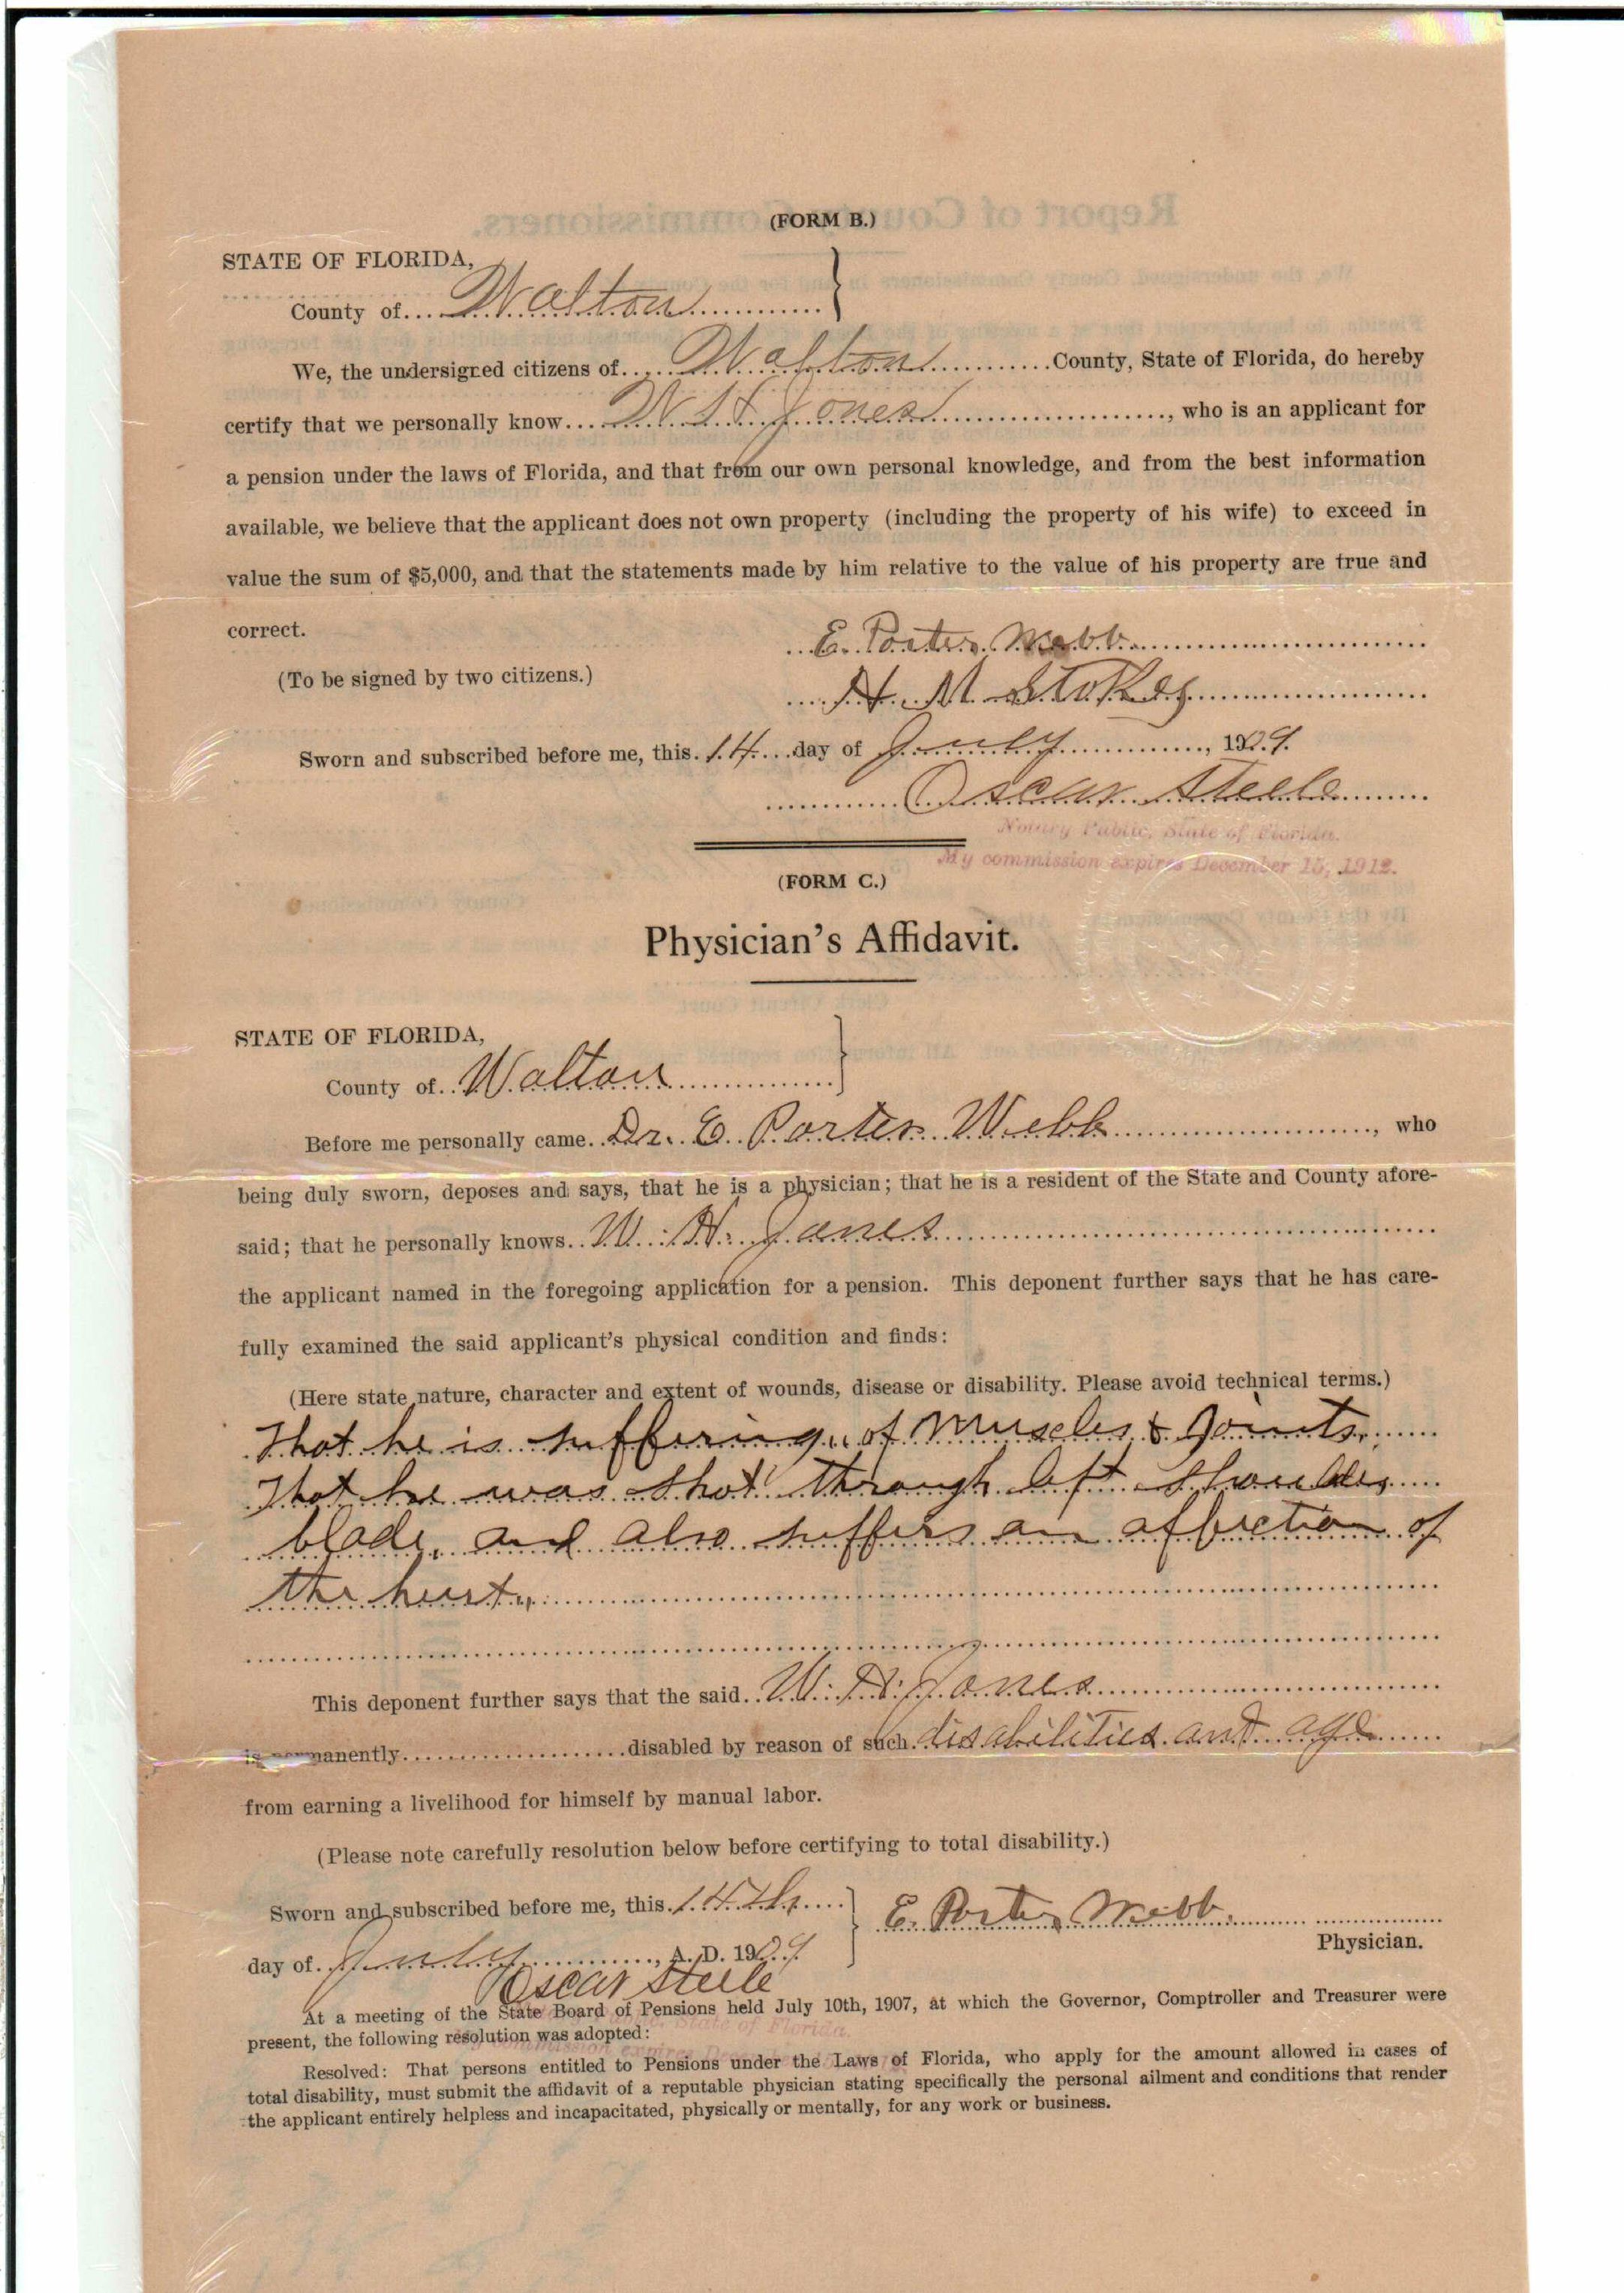 (FORM B.)
STATE OF FLORIDA,
County of Walton
We, the undersigned citizens of Walton County, State of Florida, do hereby
certify that we personally know W H Jones, who is an applicant for
a pension under the laws of Florida, and that from our own personal knowledge, and from the best information
available, we believe that the applicant does not own property (including the property of his wife) to exceed in
value the sum of $5,000, and that the statements made by him relative to the value of his property are true and
correct.
E. Porter Webb
(To be signed by two citizens.)
H. M Stokes
Sworn and subscribed before me, this 14 day of July, 1909.
Oscar Steele
Notary Public, State of Florida.
My commission expires December 15, 1912.
(FORM C.)
Physician's Affidavit.
STATE OF FLORIDA,
County of Walton
Before me personally came Dr. E. Porter Webb, who
being duly sworn, deposes and says, that he is a physician; that he is a resident of the State and County afore-
said; that he personally knows W. H. Jones
the applicant named in the foregoing application for a pension. This deponent further says that he has care-
fully examined the said applicant's physical condition and finds:
(Here state nature, character and extent of wounds, disease or disability. Please avoid technical terms.)
That he is suffering of Muscles & Joints.
That he was shot through left shoulder
blade, and also suffers an affection of
the heart.
This deponent further says that the said W. H. Jones
is permanently disabled by reason of such disabilities and age
from earning a livelihood for himself by manual labor.
(Please note carefully resolution below before certifying to total disability.)
Sworn and subscribed before me, this 14th
E. Porter Webb
Physician.
day of July, A. D. 1909
Oscar Steele
At a meeting of the State Board of Pensions held July 10th, 1907, at which the Governor, Comptroller and Treasurer were
present, the following resolution was adopted:
State of Florida.
Resolved: That persons entitled to Pensions under the Laws of Florida, who apply for the amount allowed in cases of
total disability, must submit the affidavit of a reputable physician stating specifically the personal ailment and conditions that render
the applicant entirely helpless and incapacitated, physically or mentally, for any work or business.